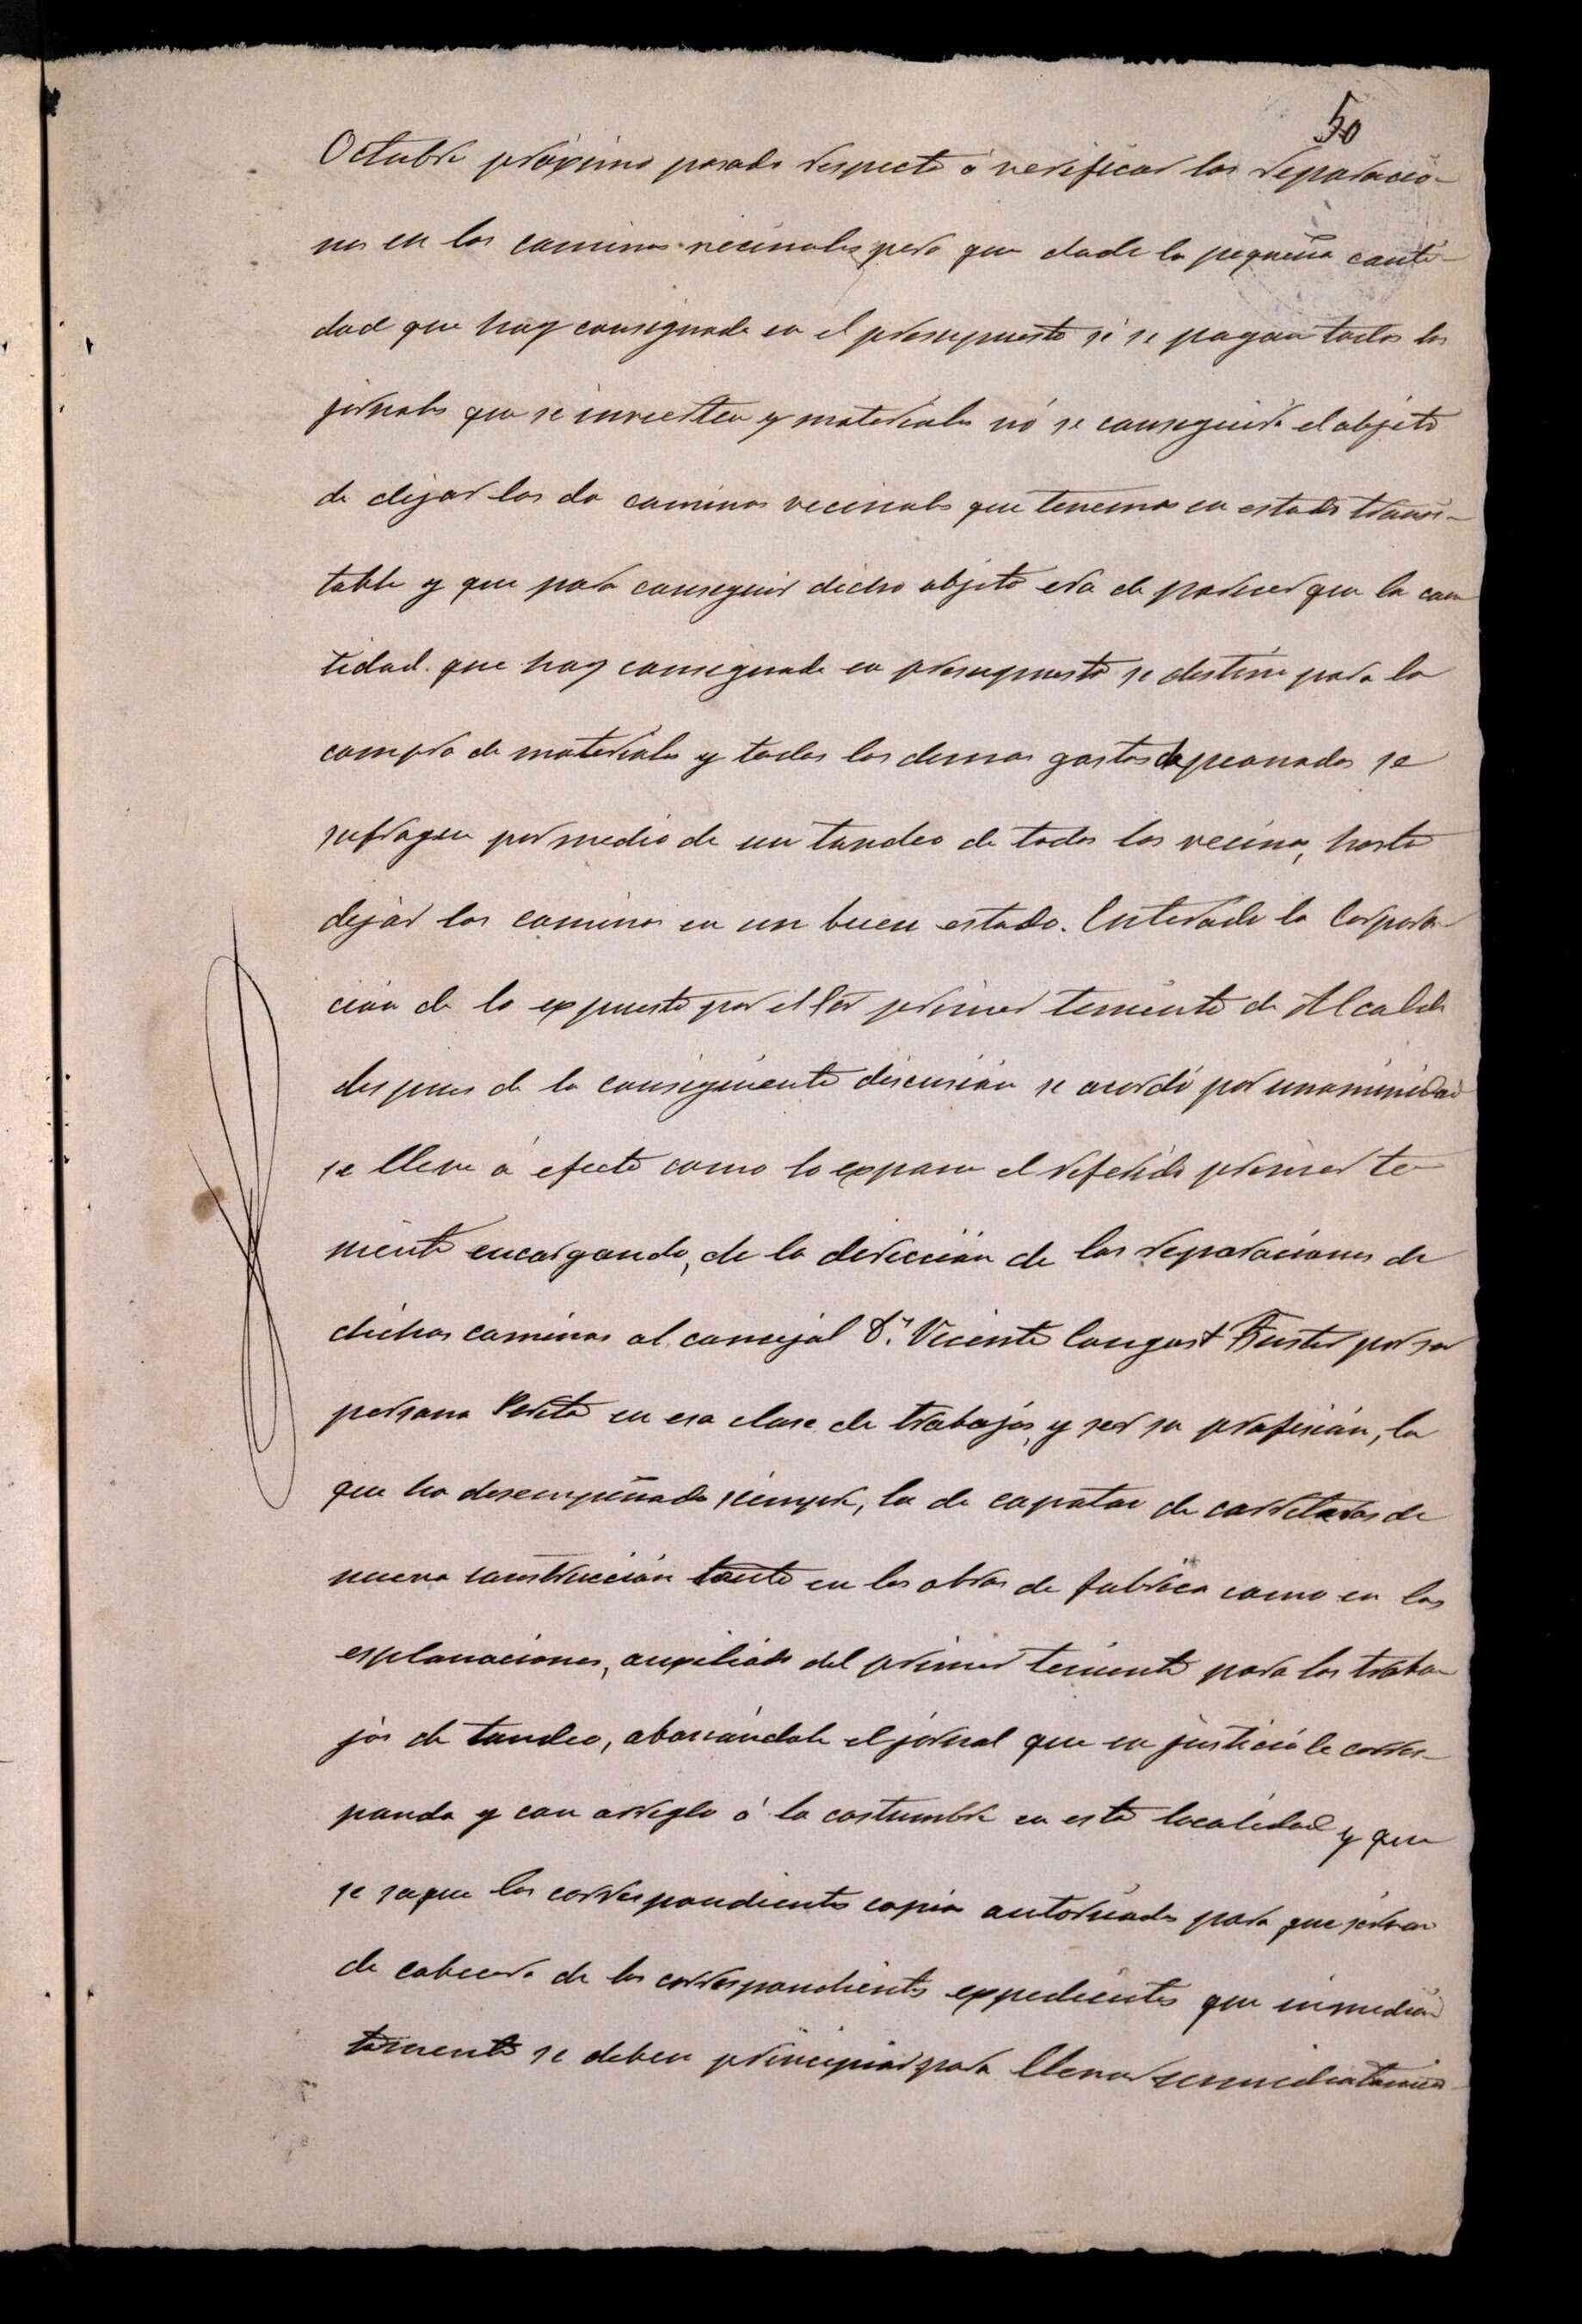 50
Octubre próximo pasado respecto á verificar las reparacio-
nes en los caminos vecinales, pero que dada la pequeña canti-
dad que hay consignada en el presupuesto si se pagan todos los
jornales que se invierten y materiales nó se conseguirá el objeto
de dejar los dos caminos vecinales que tenemos en estado transi-
table y que para conseguir dicho objeto era de parecer que la can
tidad que hay consignada en presupuesto se destine para la
compra de materiales y todos los demas gastos de peonadas se
sufragen por medio de un tandeo de todos los vecinos, hasta
dejar los caminos en un buen estado. Enterada la Corpora-
ción de lo expuesto por el Sor primer teniente de Alcalde
despues de la consiguiente discusión se acordó por unanimidad
se lleve á efecto como lo expone el referido primer te-
niente encargando, de la dirección de las reparaciones de
dichos caminos al concejal Dn. Vicente Fuster por ser
persona Perita en esa clase de trabajos, y ser su profesión, la
que ha desempeñado siempre, la de capataz de carreteras de
nueva construcción tanto en las obras de fabrica como en las
esplanaciones, auxiliado del primer teniente para los traba-
jos de tandeo, abonándole el jornal que en justicia le corres-
ponda y con arreglo á la costumbre en esta localidad y que
se saque las correspondientes copias autorizadas para que sirvan
de cabecera de los correspondientes expedientes que inmedia
tamente se deben principiar para llevar inmediatamen-